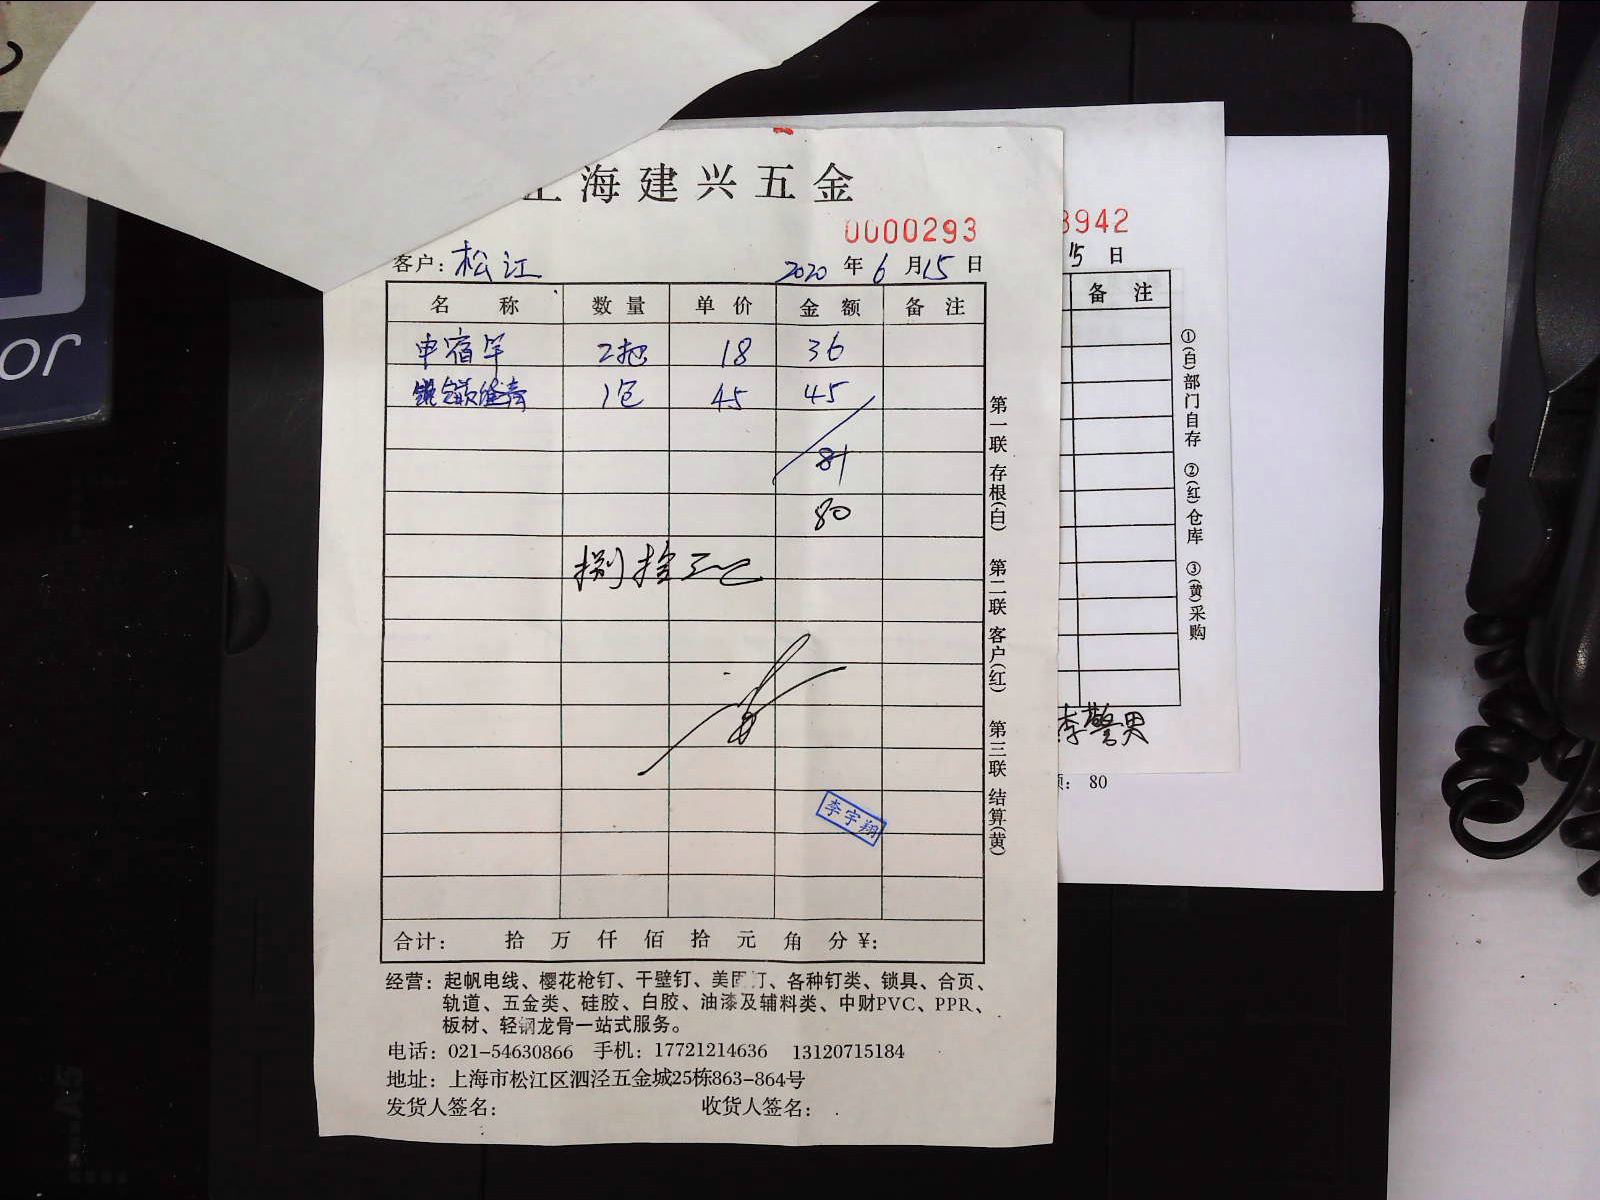 上海建兴五金
0000293
客户：松江 2020年6月15日
名称 数量 单价 金额 备注
2把 18 36
1包 45 45
81
80
捌拾元
李宇翔
合计： 拾 万 仟 佰 拾 元 角 分 ¥：
第一联 存根(白) 第二联 客户(红) 第三联 结算(黄)
经营：起帆电线、樱花枪钉、干壁钉、美固钉、各种钉类、锁具、合页、
轨道、五金类、硅胶、白胶、油漆及辅料类、中财PVC、PPR、
板材、轻钢龙骨一站式服务。
电话：021-54630866 手机：17721214636 13120715184
地址：上海市松江区泗泾五金城25栋863-864号
发货人签名： 收货人签名：
3942
15 日
备注
①(白)部门自存 ②(红)仓库 ③(黄)采购
李警男
：80
or
A5